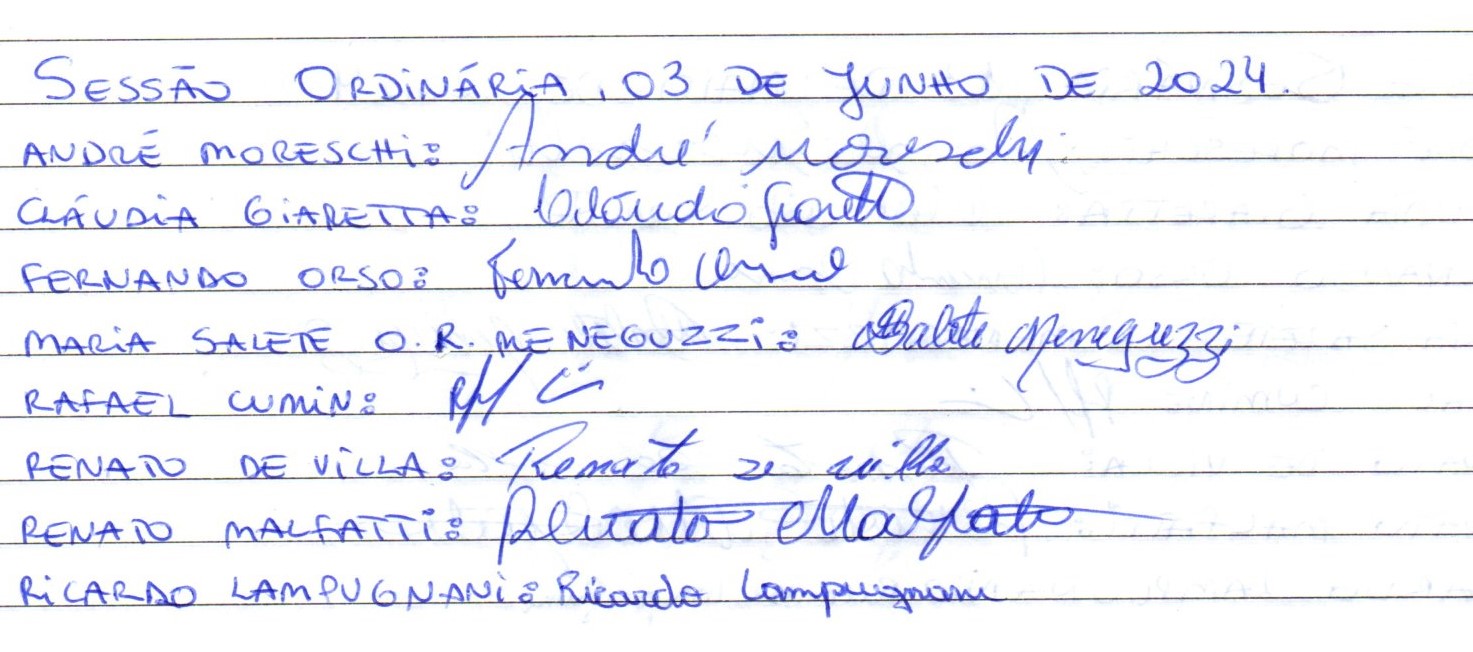 SESSÃO ORDINÁRIA, 03 DE JUNHO DE 2024.
ANDRÉ MORESCHI: André Moreschi
CLÁUDIA GIARETTA: Cláudia Giaretta
FERNANDO ORSO: Fernando
MARIA SALETE O.R. MENEGUZZI: Salete Meneguzzi
RAFAEL CUMIN:
RENATO DE VILLA: Renato De Villa
RENATO MALFATTI: Renato Malfatti
RICARDO LAMPUGNANI: Ricardo Lampugnani